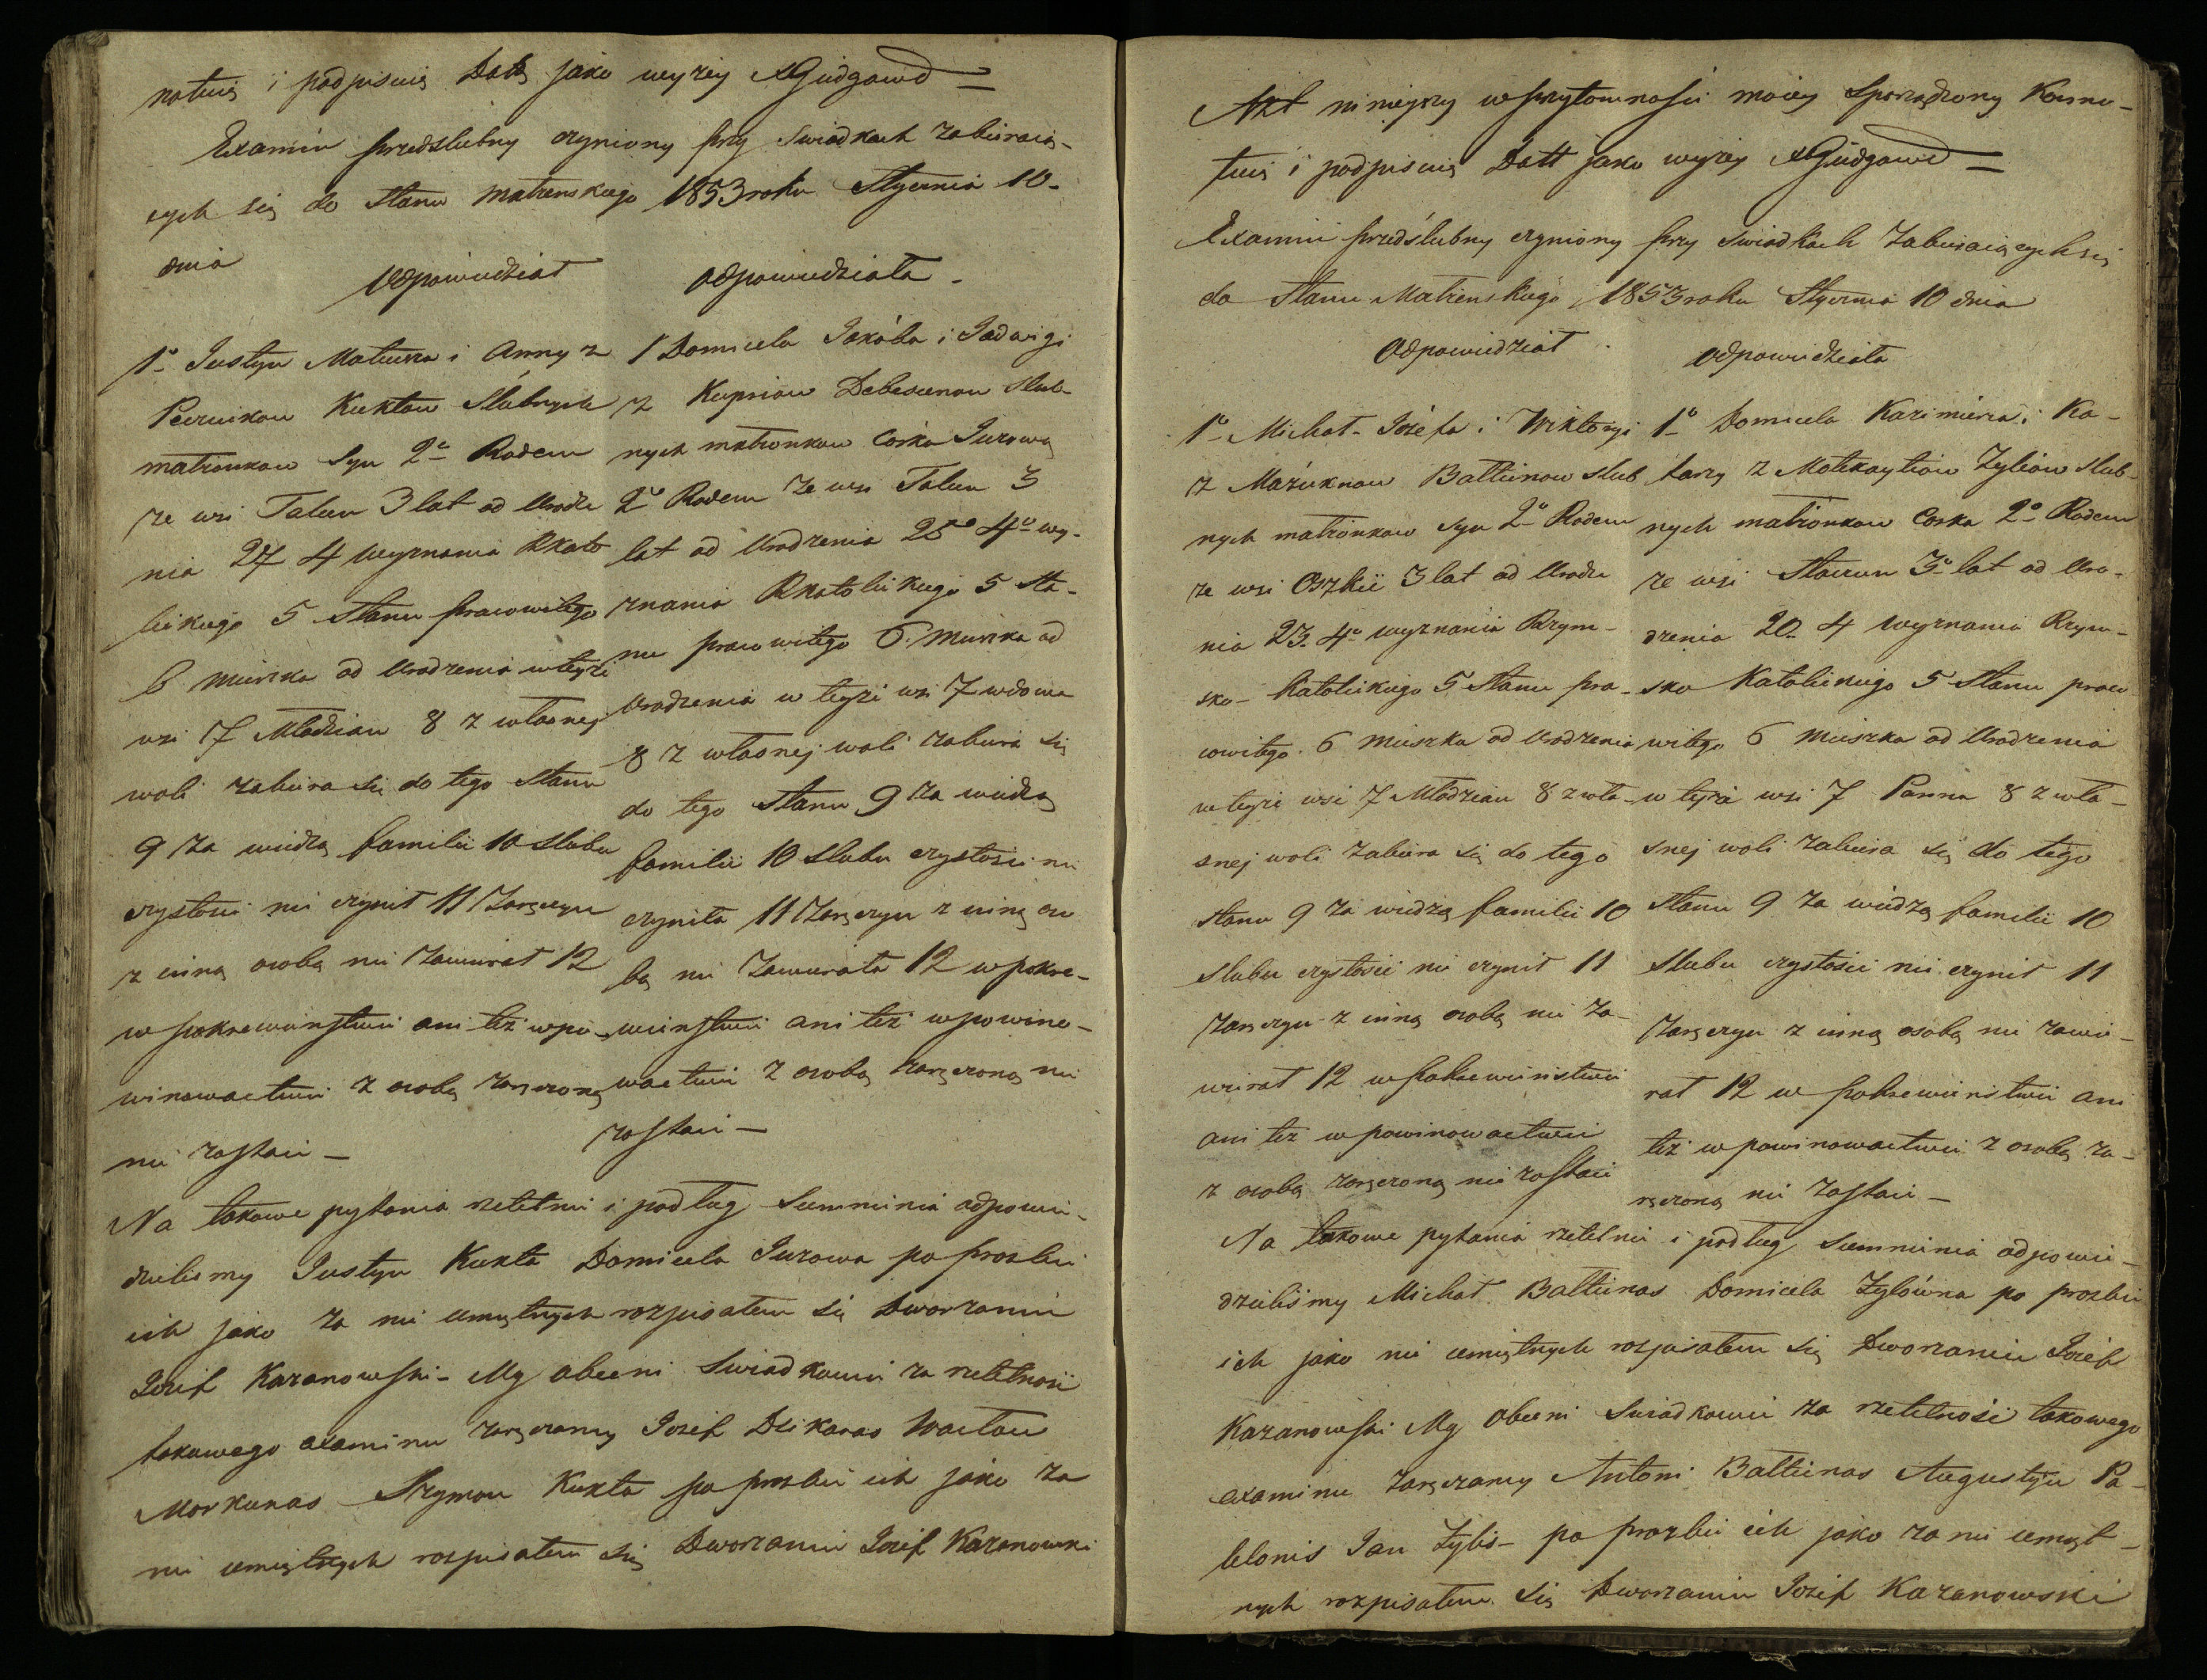 notuię i podpisuię Datą jako wyżey XGiedgowd =
Examin przedślubny czyniony przy Swiadkach zabieraią-
cych się do Stanu Małżenskiego 1853 roku Stycznia 10-
dnia
Odpowiedział
1o Justyn Mateusza i Anny z
Piecuikow Kuktow Slubnych
małżonkow Syn 2o Rodem
ze wsi Talun 3 lat od Urodze
nia 27 4 wyznania Rkato
lickiego 5 Stanu pracowitego
6 mieszka od Urodzenia w teyże
wsi 7 Młodzian 8 z własnej
woli zabiera się do tego Stanu
9 za wiedzą familii 10 slubu
czystości nie czynił 11 Zaręczyn
z inną osobą nie zawierał 12
w pokrewieństwie ani też w po-
winowactwie z osobą zaręczoną
nie zostaie —
Odpowiedziała -
1 Domicela Jakóba i Jadwigi
z Kupriow Debesiunow Slub-
nych małżonkow Corka Jurowa
2o Rodem ze wsi Talun 3
lat od Urodzenia 25o 4o wy-
znania Rkatolickiego 5 Sta-
nu pracowitego 6 mieszka od
Urodzenia w teyże wsi 7 wdowa
8 z własnej woli zabiera się
do tego Stanu 9 za wiedzą
familii 10 Slubu czystości nie
czyniła 11 Zaręczyn z inną oso
bą nie zawierała 12 w pokre-
wieństwie ani też w powino-
wactwie z osobą zaręczoną nie
zostaie —
Na takowe pytania rzetelnie i podług Sumnienia odpowie-
dzielismy Justyn Kukta Domicela Jurowa po prozbie
ich jako za nie umiętnych rozpisałem się Dworzanin
Jozef Kazanowski - My obecni Swiadkowie za rzetelność
takowego examinu zaręczamy Jozef Dzikaras Wacław
Morkunas Szymon Kukta po prozbie ich jako za
nie umiętnych rozpisałem się Dworzanin Jozef Kazanowski
Akt ninieyszy w przytomności moiey Sporządzony Konno-
tuię i podpisuię Datt jako wyżey XGiedgowd =
Examin przedślubny czyniony przy swiadkach Zabieraiących się
do Stanu Małżenskiego 1853 roku Stycznia 10 dnia
Odpowiedział
1o Michał Józefa i Wiktoryi
z Mażuknow Baltiunow slub
nych małżonkow Syn 2o Rodem
ze wsi Oszkii 3 lat od Urodze
nia 23. 4o wyznania Rzym-
sko- Katolickiego 5 Stanu pra-
cowitego. 6 mieszka od Urodzenia
w teyże wsi 7 Młodzian 8 z wła-
snej woli zabiera się do tego
Stanu 9 za wiedzą familii 10
Slubu czystości nie czynił 11
Zaręczyn z inną osobą nie za-
wierał 12 w pokrewieństwie
ani też w powinowactwie
z osobą zaręczoną nie zostaie
Odpowiedziała
1o Domicela Kazimierza i Ka-
tarzy z Motekaytiow Zyliow slub-
nych małżonkow Corka 2o Rodem
ze wsi Staciun 3o lat od Uro-
dzenia 20. 4 wyznania Rzym-
sko Katolickiego 5 Stanu praco
witego 6 mieszka od Urodzenia
w teyże wsi 7 Panna 8 z wła-
snej woli zabiera się do tego
Stanu 9 za wiedzą familii 10
Slubu czystości nie czynił 11
Zaręczyn z inną osobą nie zawie-
rał 12 w pokrewieństwie ani
też w powinowactwie z osobą za-
ręczoną nie zostaie —
Na takowe pytania rzetelnie i podług Sumnienia odpowie-
dzieliśmy Michał Baltiunas Domicela Zylówna po prozbie
ich jako nie umiętnych rozpisałem się Dworzanin Jozef
Kazanowski My obecni Swiadkowie za rzetelność takowego
examinu zaręczamy Antoni Baltiunas Augustyn Pa-
belonis Jan Żylis - po prozbie ich jako za nie umięt-
nych rozpisałem się Dworzanin Jozef Kazanowski